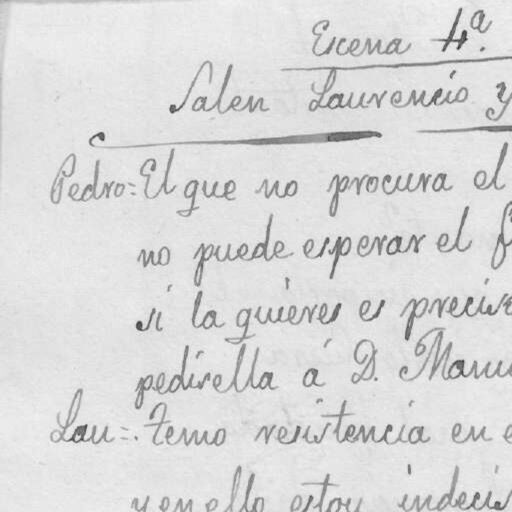 Escena 4ª.
Salen Laurencio y
Pedro = El que no procura el
no puede esperar el
si la quieres es
pedirsella á D.
Lau =. Temo resistencia en
y en ello estoy